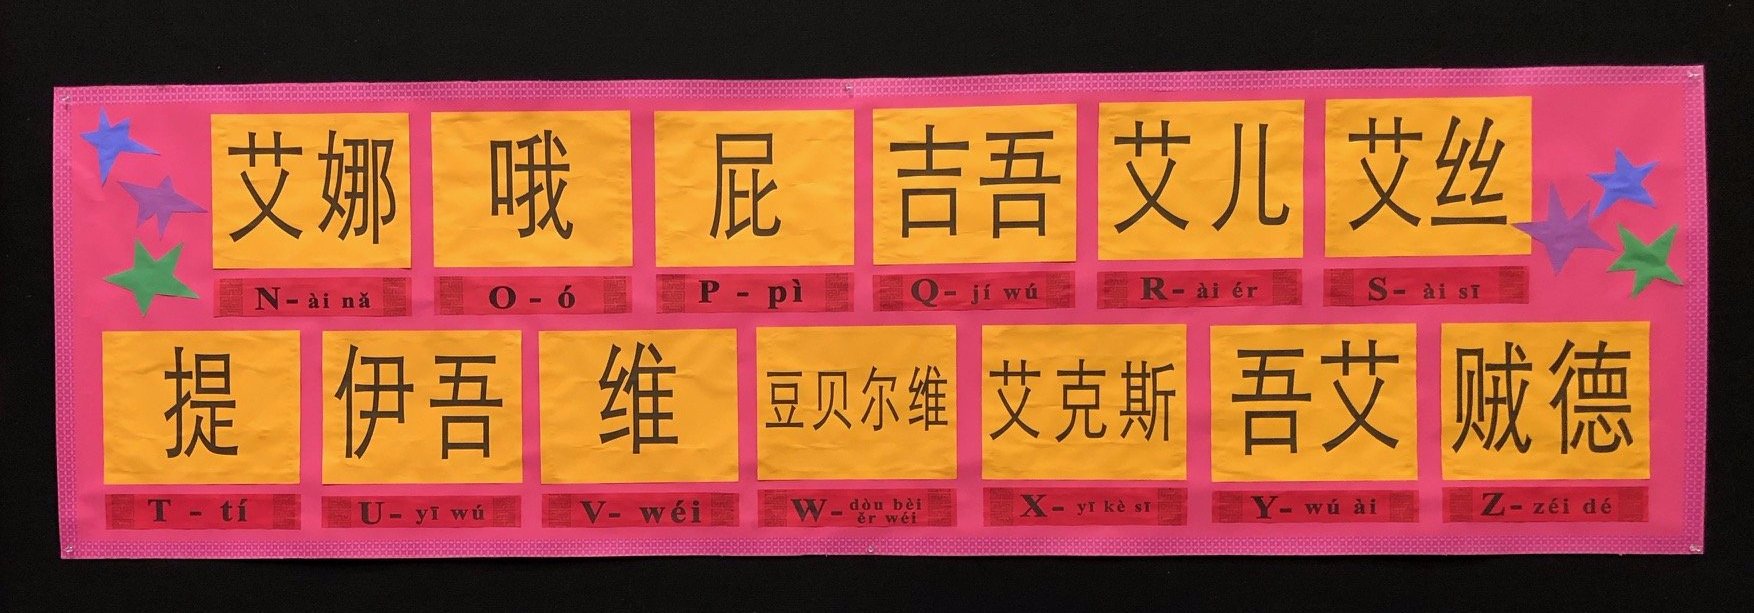 艾娜 哦 屁 吉吾 艾儿 艾丝
N- ài nǎ O - ó P - pì Q- jí wú R- ài ér S- ài sī
提 伊吾 维 豆贝尔维 艾克斯 吾艾 贼德
T - tí U- yī wú V- wéi W- dòu bèi ěr wéi X- yī kè sī Y- wú ài Z- zéi dé